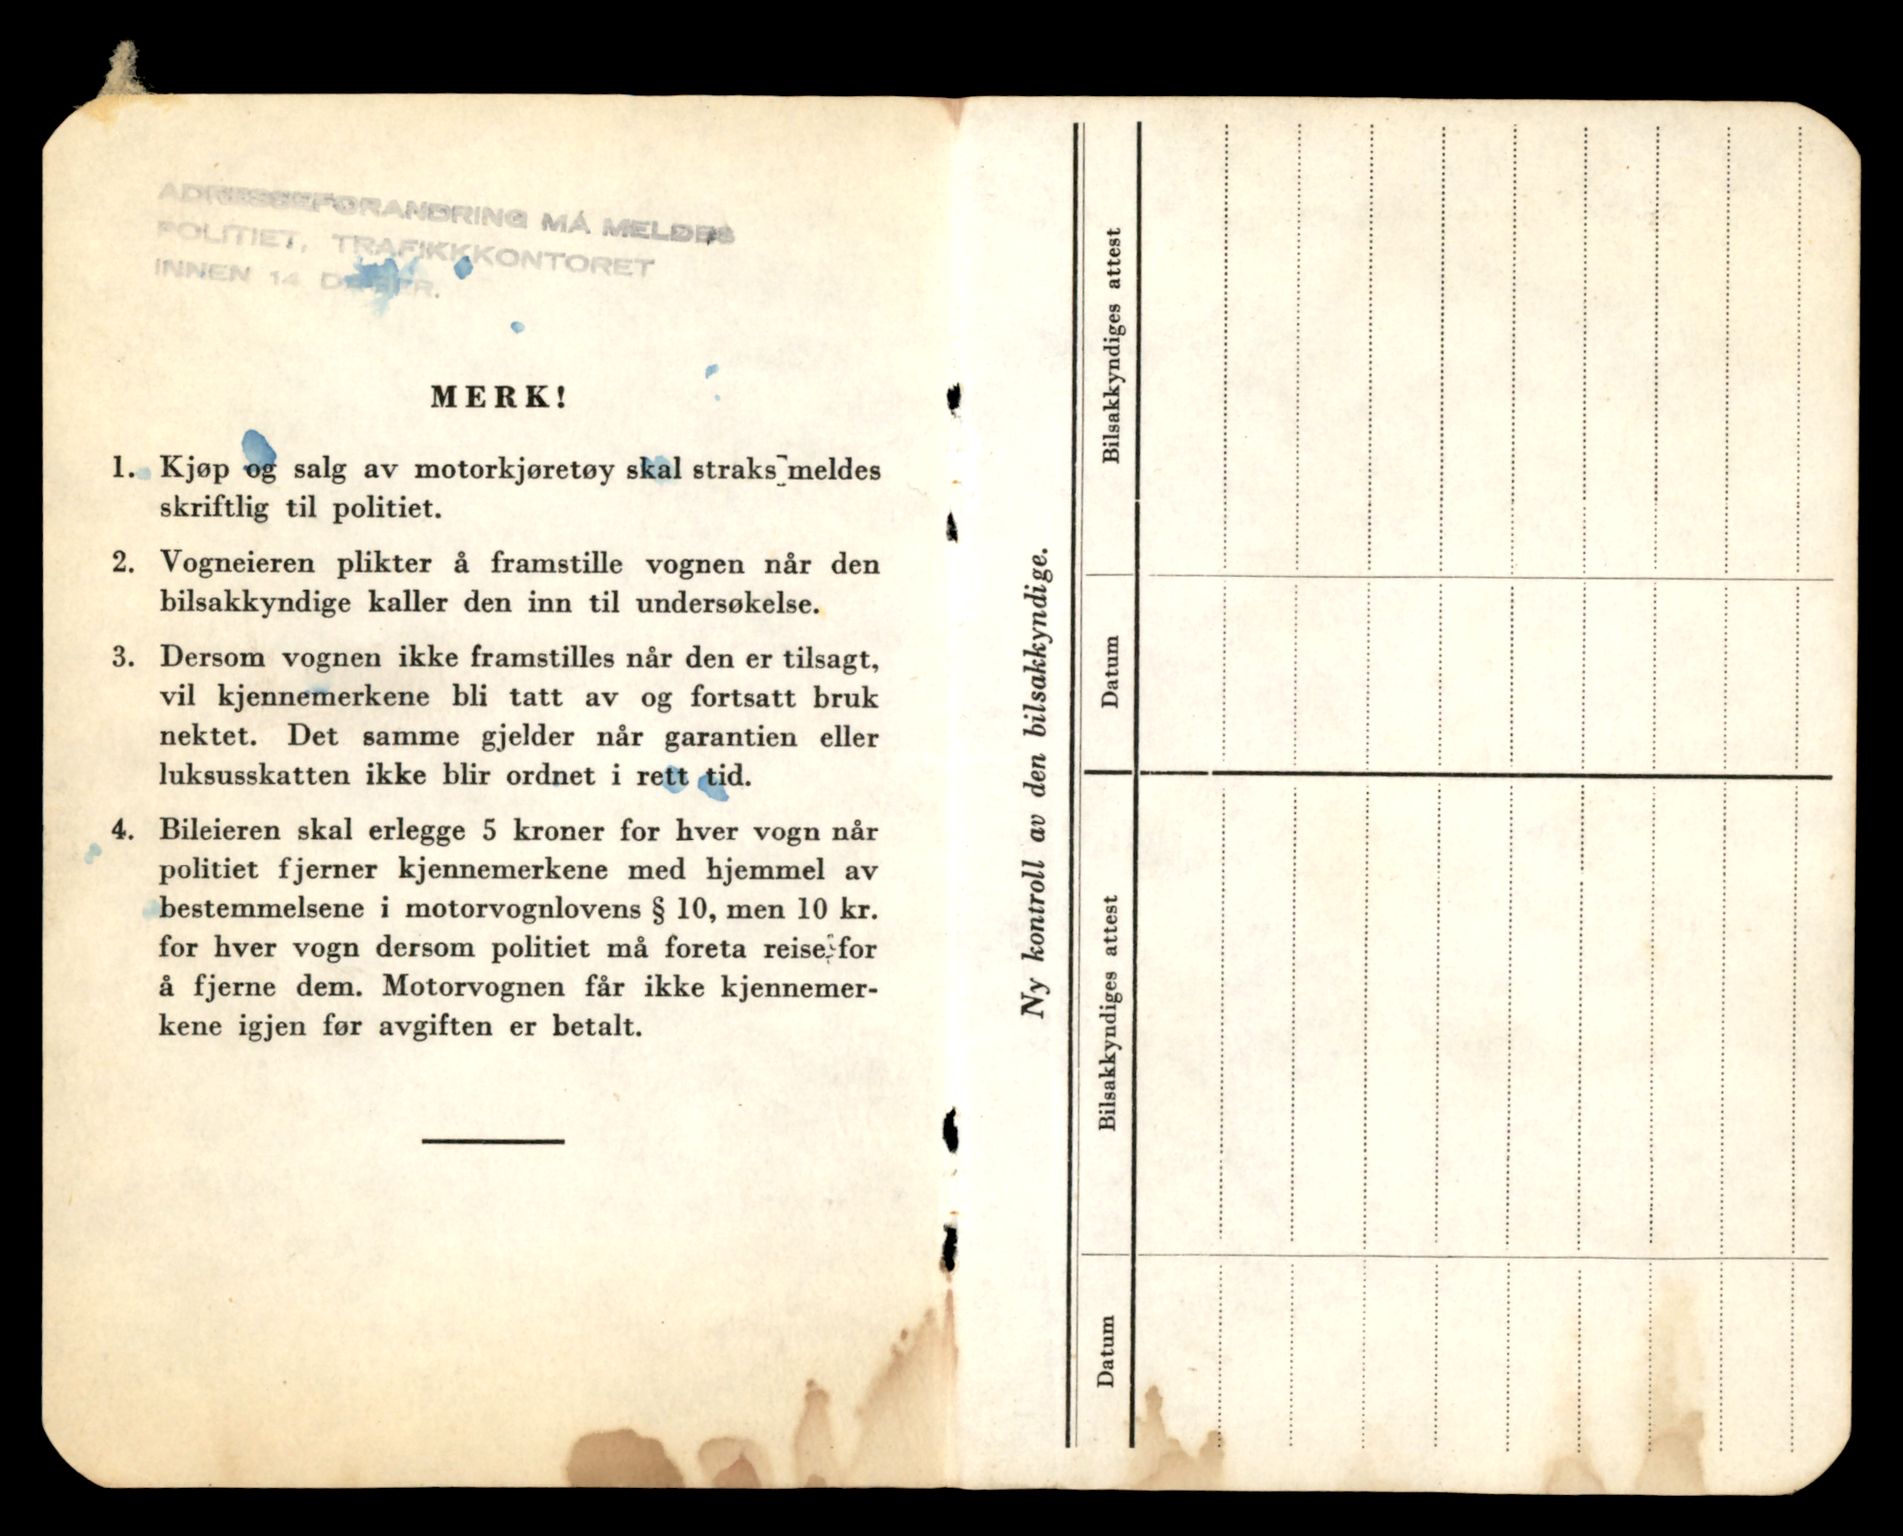 ADRESSEFORANDRING MÅ MELDES
POLITIET, TRAFIKKKONTORET
INNEN 14
MERK!
1. Kjøp og salg av motorkjøretøy skal straks meldes
skriftlig til politiet.
2. Vogneieren plikter å framstille vognen når den
bilsakkyndige kaller den inn til undersøkelse.
3. Dersom vognen ikke framstilles når den er tilsagt,
vil kjennemerkene bli tatt av og fortsatt bruk
nektet. Det samme gjelder når garantien eller
luksusskatten ikke blir ordnet i rett tid.
4. Bileieren skal erlegge 5 kroner for hver vogn når
politiet fjerner kjennemerkene med hjemmel av
bestemmelsene i motorvognlovens § 10, men 10 kr.
for hver vogn dersom politiet må foreta reise for
å fjerne dem. Motorvognen får ikke kjennemer-
kene igjen før avgiften er betalt.
Ny kontroll av den bilsakkyndige.
Datum
Bilsakkyndiges attest
Datum
Bilsakkyndiges attest